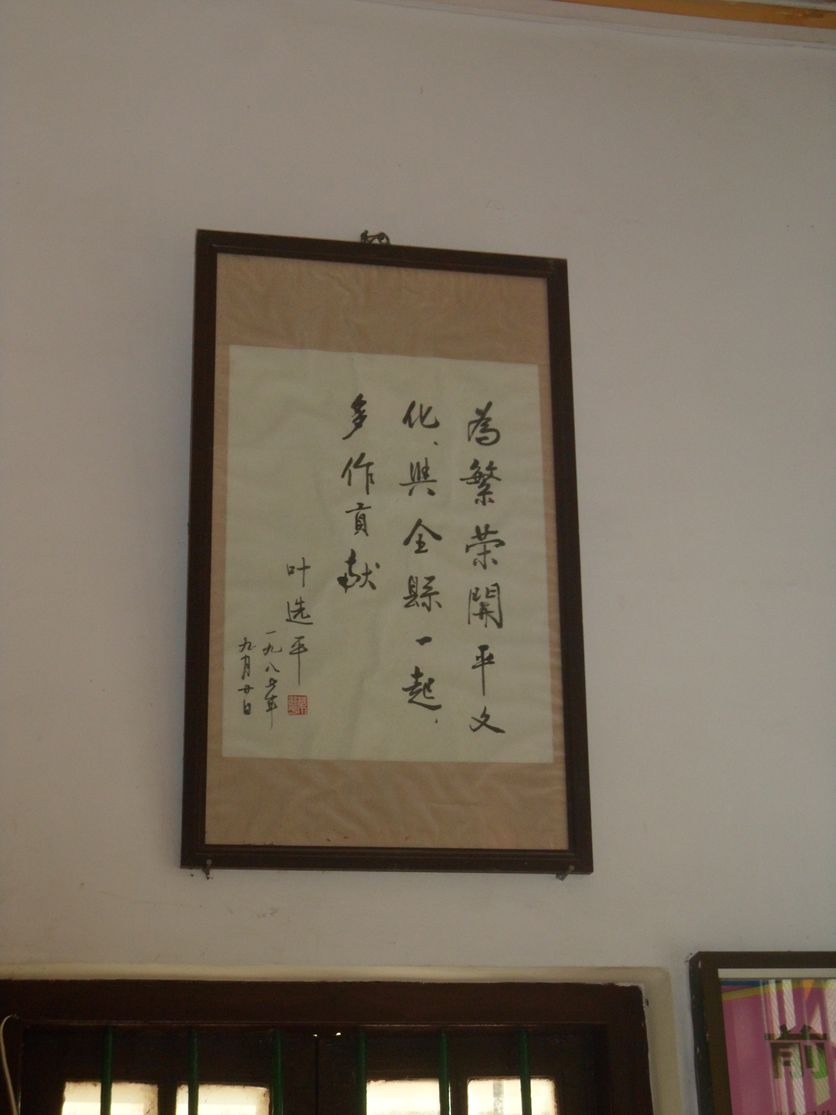 為繁荣開平文
化、與全縣一起、
多作貢献
叶选平
一九八七年
九月廿日
前